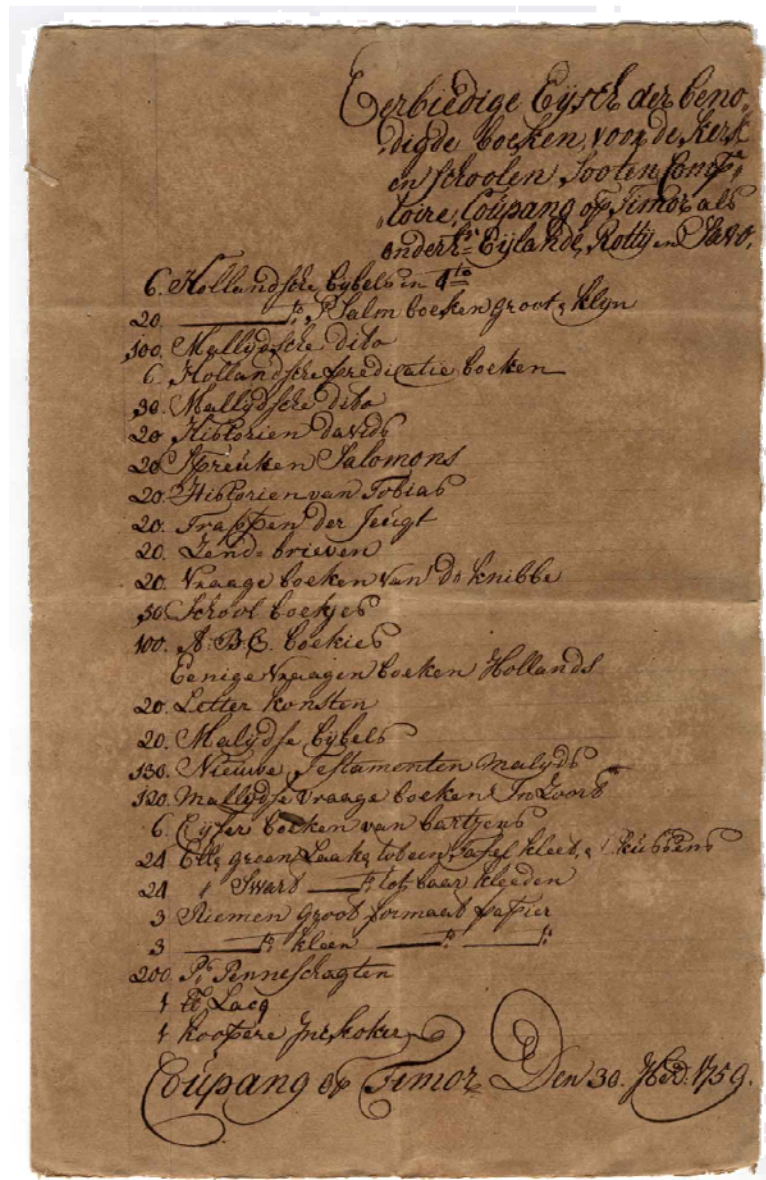 Eerbiedige Eijsch der beno,
digde boeken, voor de kerk
en schoolen, Soo ten Comp,
toire, Coúpang op Timor als
onderh: Eijlande, Rottij en Savo,
6. Hollandsche bybels in 4to
20. ——— do Psalm boeken groot & klyn
100. Mallydsche dito
6. Hollandsche predicatie boeken
30. Mallydsche dito
20. Historien davids
20. Spreuken Salomons
20. Historien van Tobias
20. Trappen der Jeúgt
20. Zend-brieven
20. Vraage boeken van Ds knibbe
50. School boekjes
100. A: B: C. boekies
Eenige Vraagen boeken Hollands
20. Letter konsten
20. Malydse bybels
130. Nieuwe Testamenten Malyds
120. Mallydse Vraage boeken
6. Cyfer boeken van bartjens
24 Elle groen Laake tot een Tafel kleed, & kussens
24 " Swart —— do tot baar kleeden
3 Riemen groot formaat papier
3 —— do kleen —— do —— do
200. Ps Penneschagten
1 lb Lacq
1 koopere Inkkoker
Coúpang op Timor Den 30. 1759.